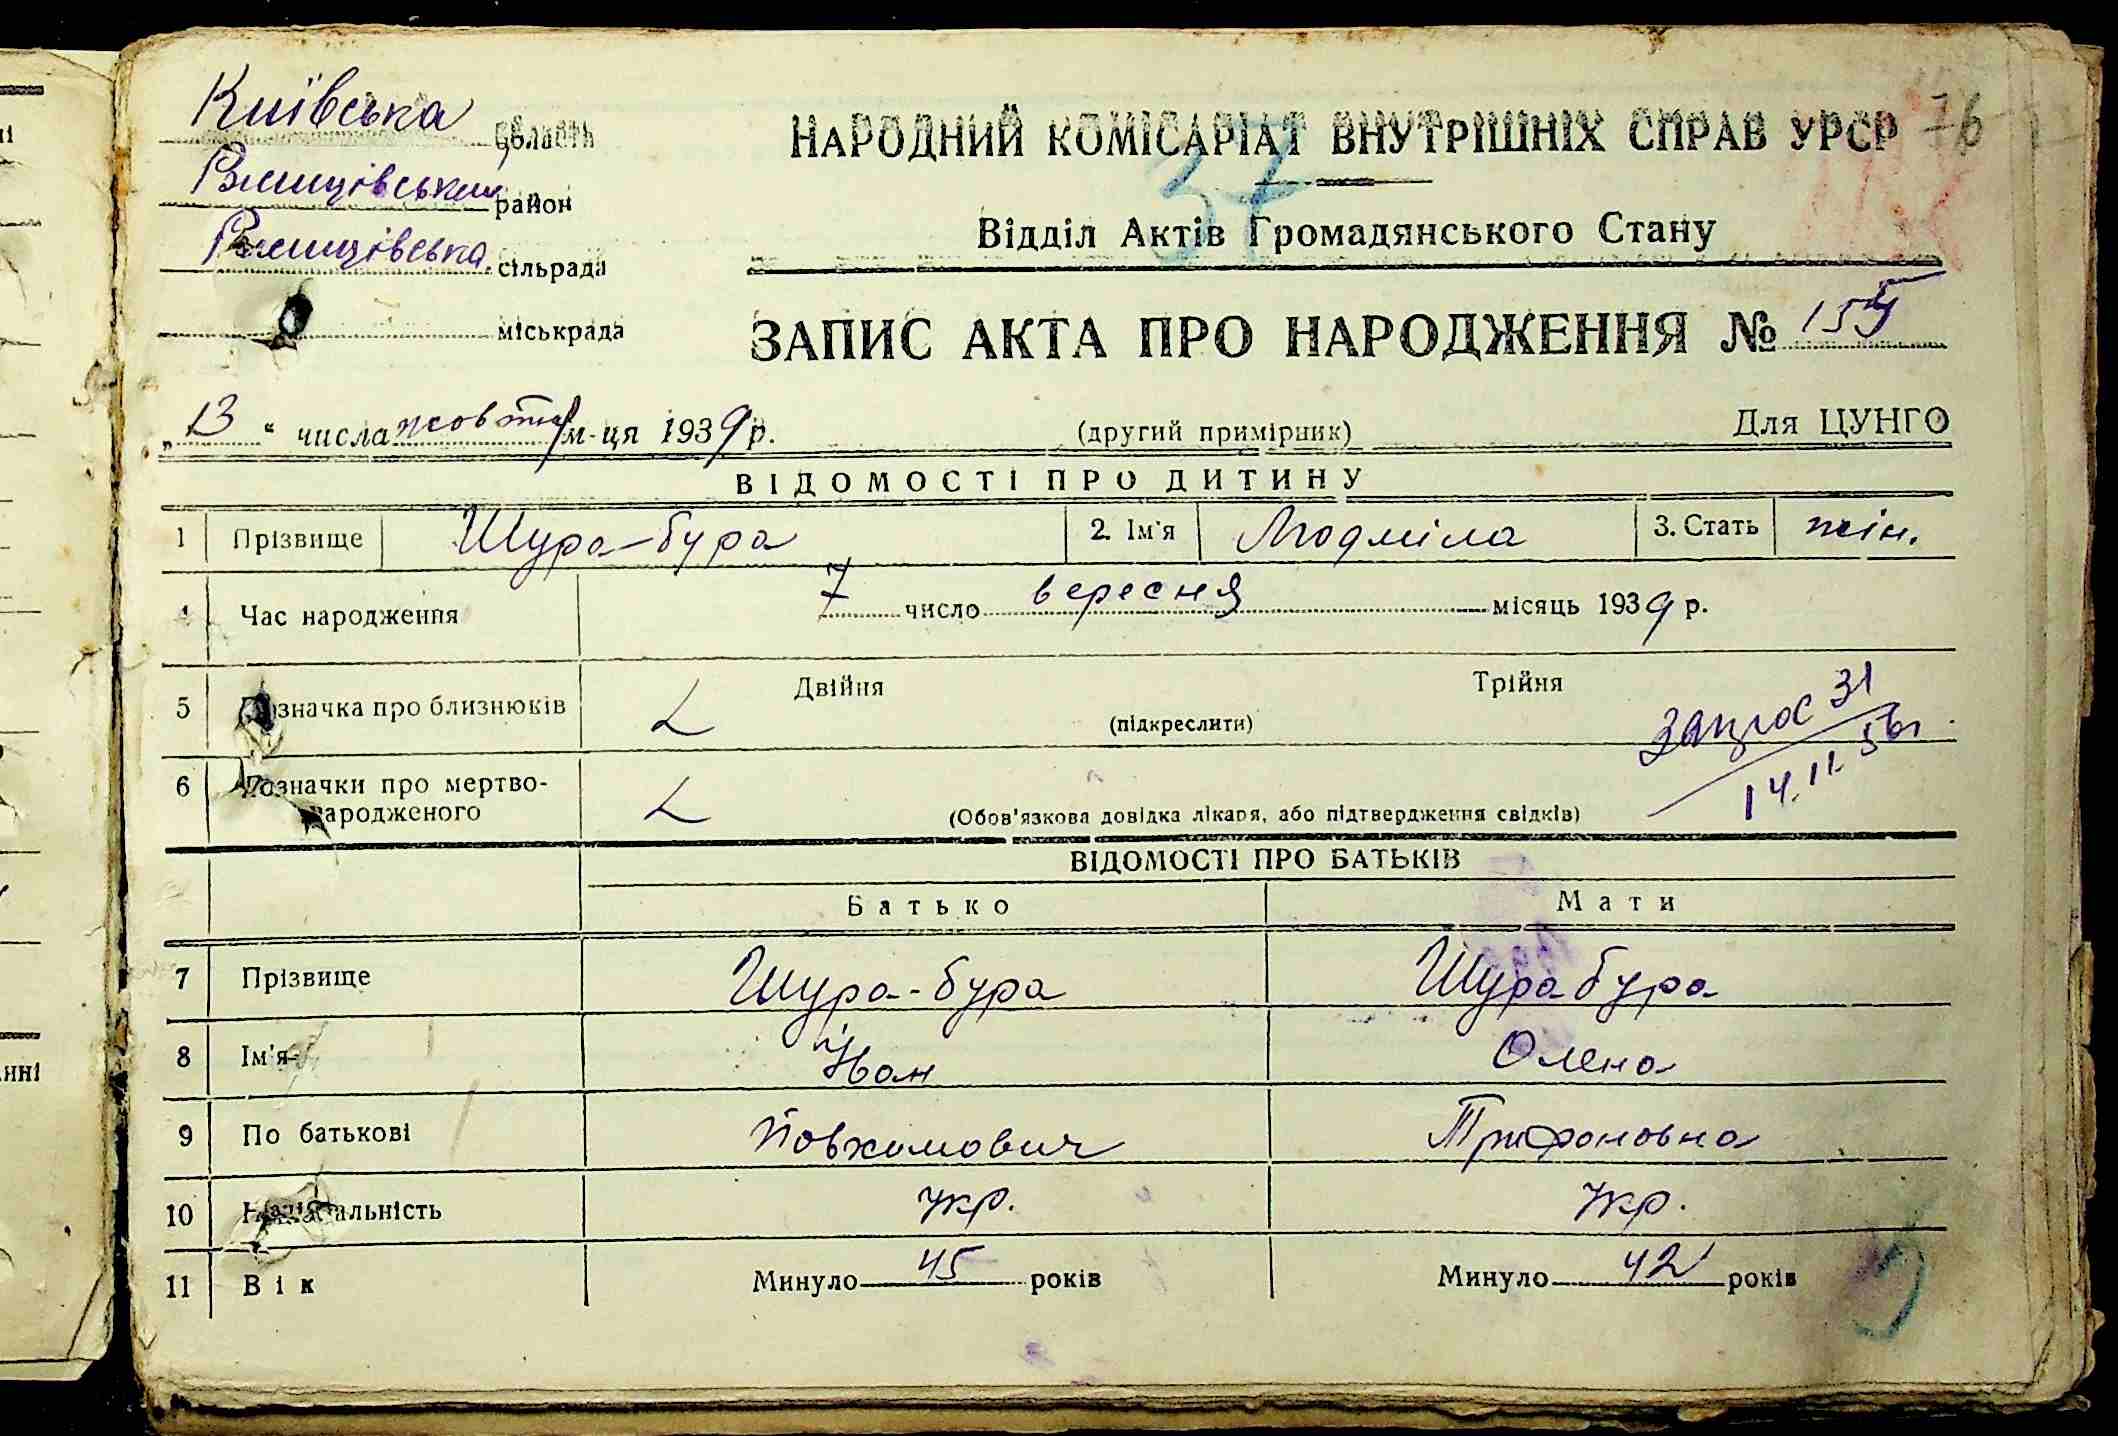 Київська область
Ржищівський район
Ржищівська сільрада
міськрада
НАРОДНИЙ КОМІСАРІАТ ВНУТРІШНІХ СПРАВ УРСР 76
37
Відділ Актів Громадянського Стану
ЗАПИС АКТА ПРО НАРОДЖЕННЯ № 155
„13“ числа жовтня м-ця 1939 р. (другий примірник) Для ЦУНГО
ВІДОМОСТІ ПРО ДИТИНУ
1 Прізвище Шура-бура 2. Ім'я Людміла 3. Стать жін.
4 Час народження 7 число вересня місяць 1939 р.
5 Позначка про близнюків Двійня Трійня
(підкреслити)
Запрос 31
14.11.56г
6 Позначки про мертво-
народженого (Обов'язкова довідка лікаря, або підтвердження свідків)
ВІДОМОСТІ ПРО БАТЬКІВ
Батько Мати
7 Прізвище Шура-бура Шура бура
8 Ім'я Іван Олена
9 По батькові Йовхимович Трифоновна
10 Національність укр. укр.
11 Вік Минуло 45 років Минуло 42 років